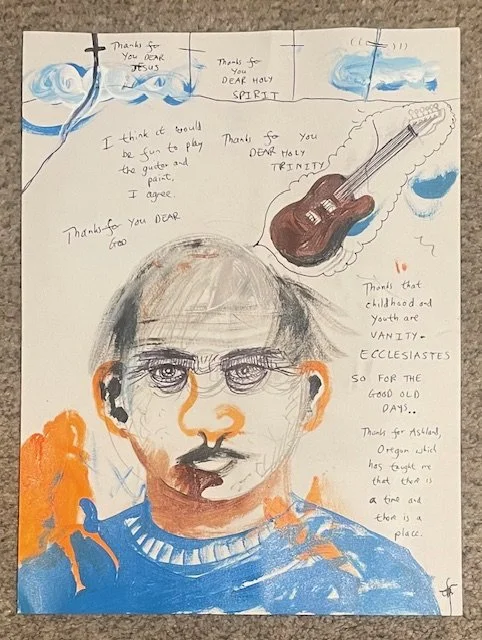 Thanks for
YOU DEAR
JESUS
Thanks for
YOU
DEAR HOLY
SPIRIT
I think it would
be fun to play
the guitar and
paint,
I agree.
Thanks for YOU
DEAR HOLY
TRINITY
Thanks for YOU DEAR
GOD
Thanks that
childhood and
Youth are
VANITY-
ECCLESIASTES
SO FOR THE
GOOD OLD
DAYS..
Thanks for Ashland,
Oregon which
has taught me
that there is
a time and
there is a
place.